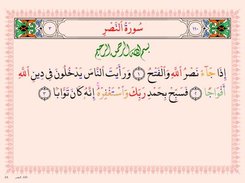 سُورَةُ النَّصْرِ
بِسْمِ اللَّهِ الرَّحْمَٰنِ الرَّحِيمِ
إِذَا جَآءَ نَصْرُ اللَّهِ وَالْفَتْحُ ١ وَرَأَيْتَ النَّاسَ يَدْخُلُونَ فِي دِينِ اللَّهِ
أَفْوَاجًا ٢ فَسَبِّحْ بِحَمْدِ رَبِّكَ وَاسْتَغْفِرْهُ إِنَّهُ كَانَ تَوَّابًا ٣